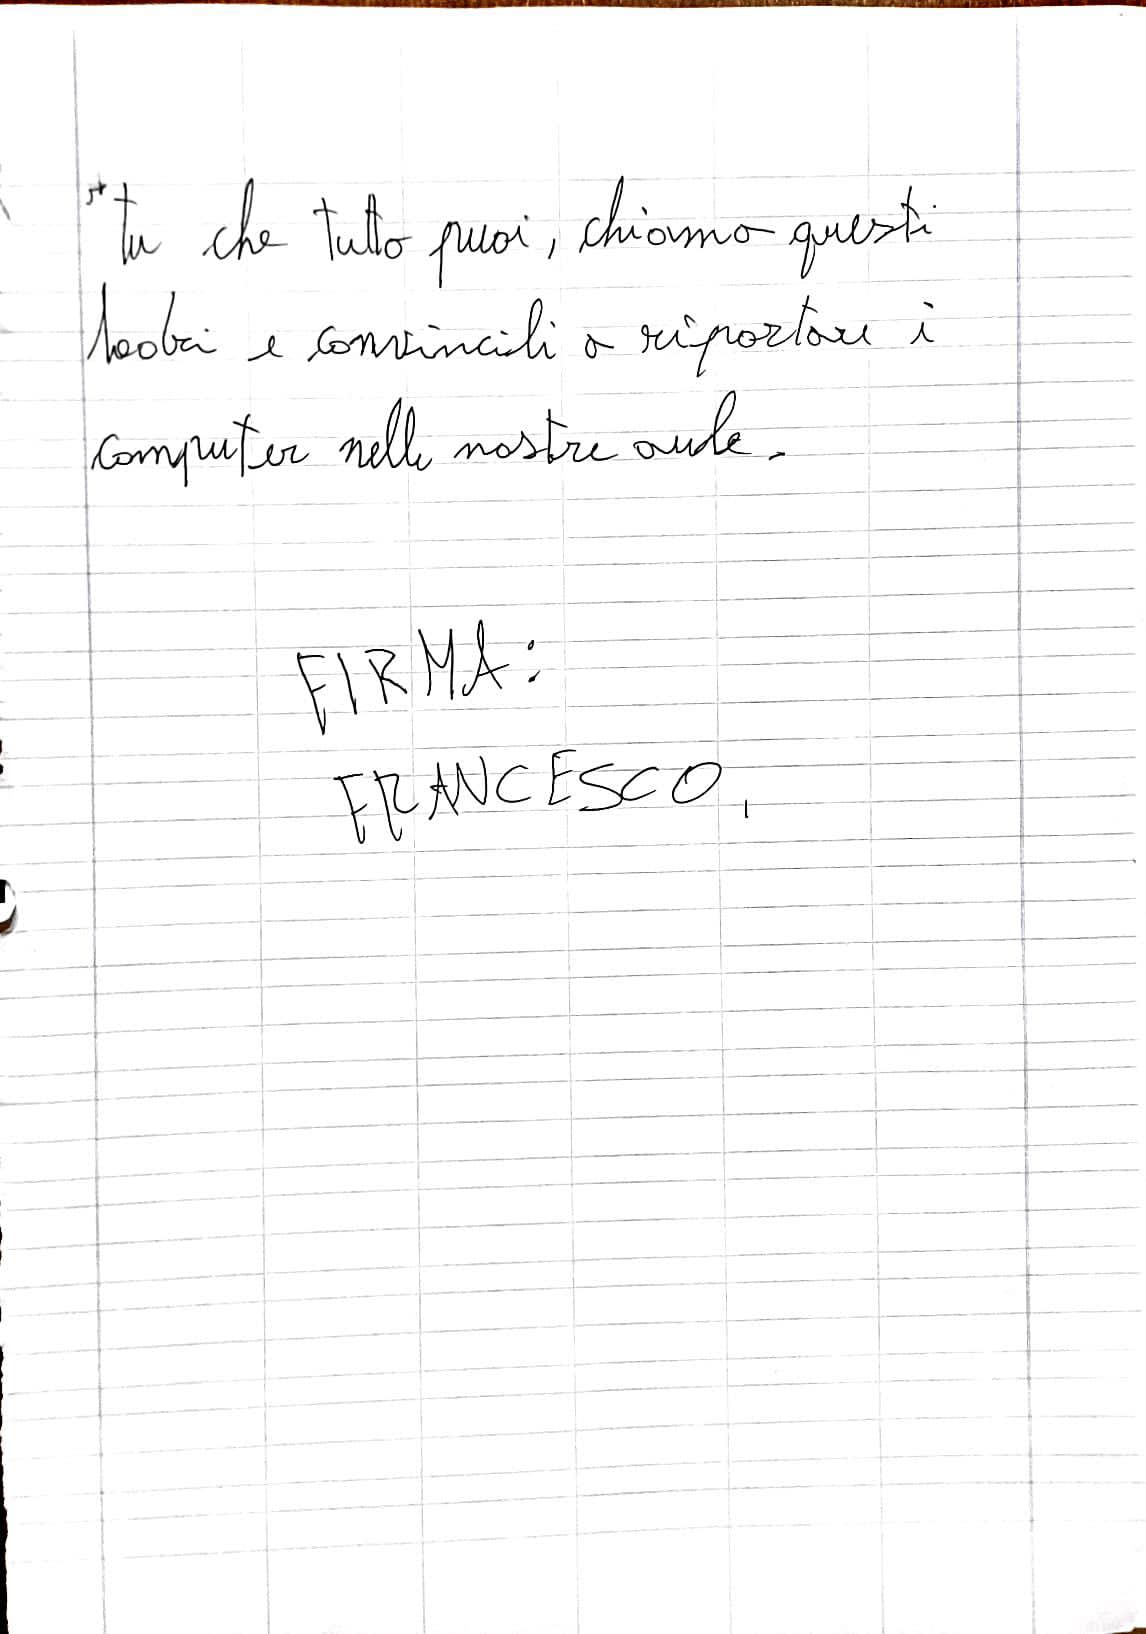 *Tu che tutto puoi, chiama questi
ladri e convincili a riportare i
computer nelle nostre aule.
FIRMA:
FRANCESCO,